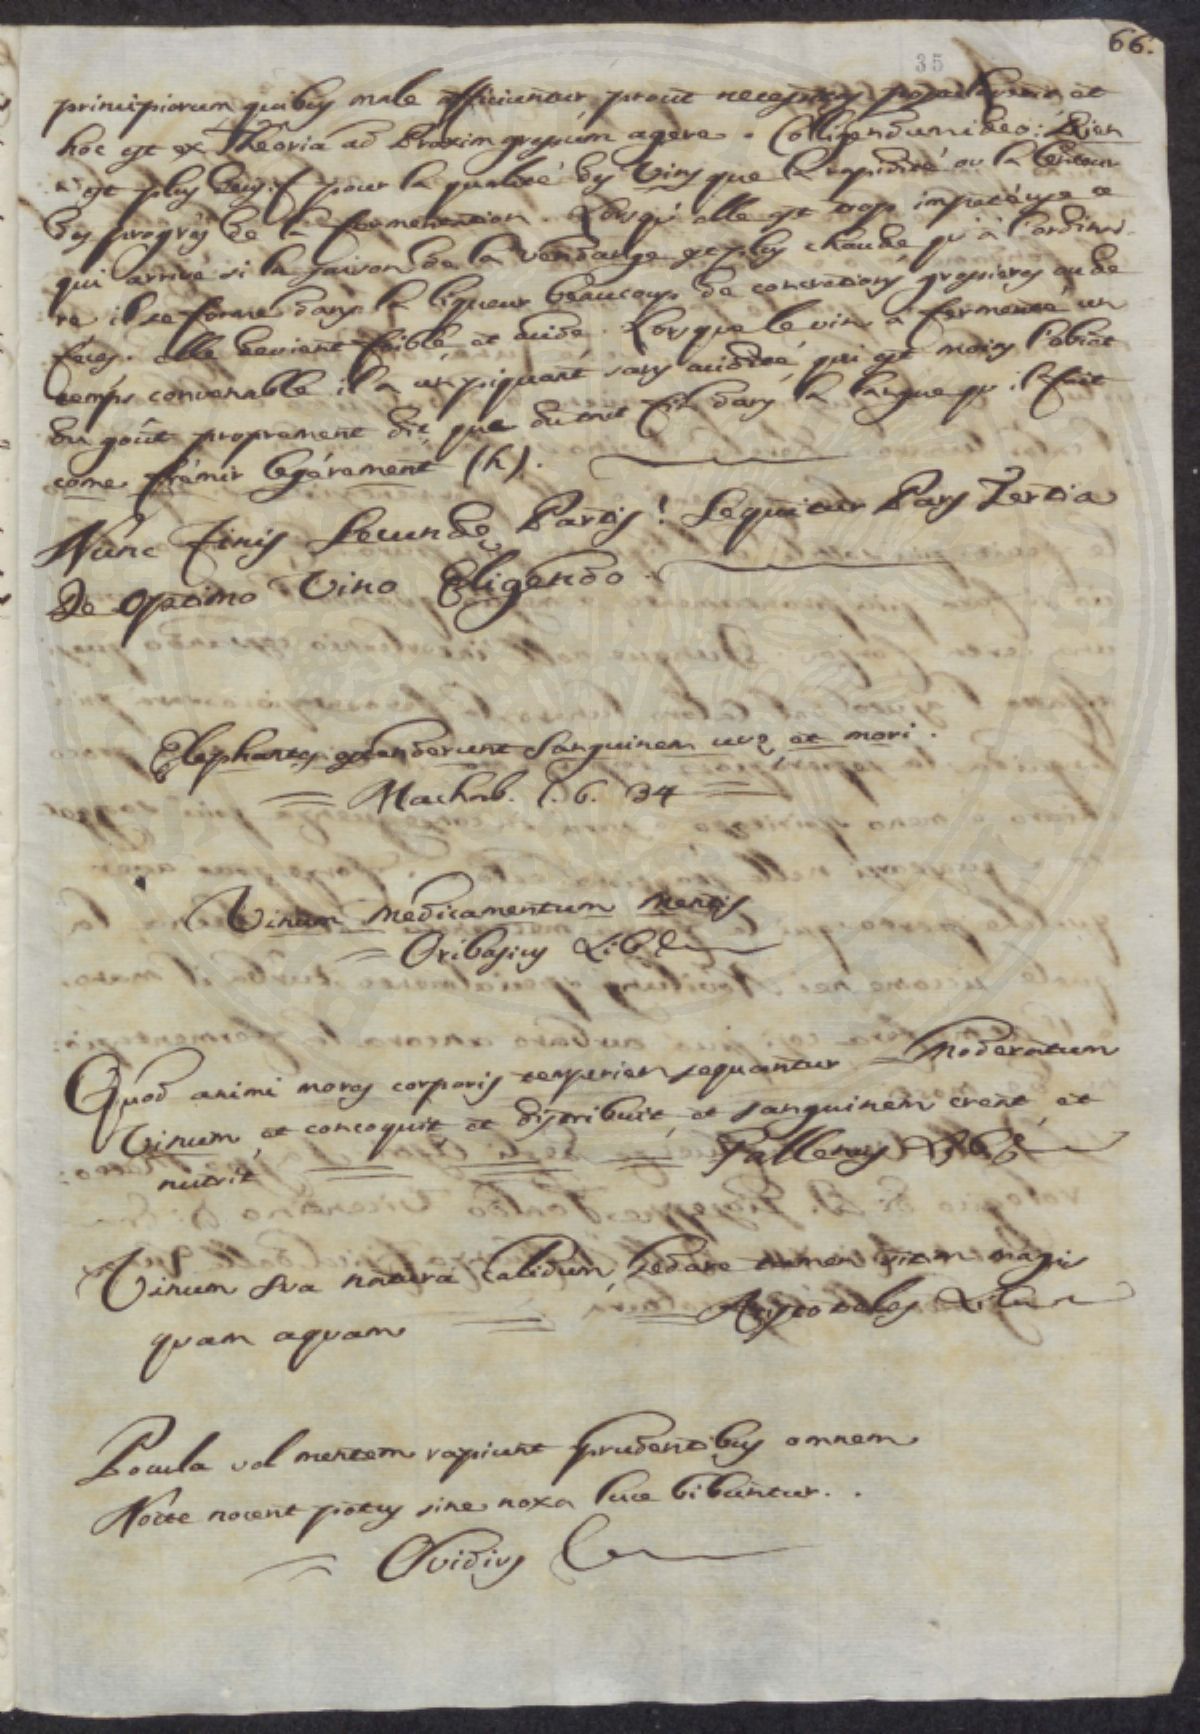 66.
35
principiorum quibus male afficiuntur, prout necessitas et
hoc est ex Theoria ad Praxim gressum agere. Colligendum ideo: Rien
n'est plus pour la qualité des Vins que la rapidité ou la lenteur
des progrés de la fermentation. Lorsqu'elle est trop impetueuse ce
qui arrive si la saison de la vendange est plus chaude qu'à l'ordinai-
re il se forme dans la liqueur beaucoup de concretions grossieres ou de
feces. elle devient foible, et acide. Lorsque le vin a fermenté un
temps convenable il a un piquant sans acidité, qui est moins l'obiet
du goût proprement dit, que du tact dans la langue qu'il fait
come frémir legérement (h).
Nunc Finis Secundę Partis! Sequitur Pars Tertia
De Optimo Vino Eligendo.
Elephantes ostenderunt Sanguinem uvę, et mori.
Machab. l. 6. 34
Vinum medicamentum mentis
Oribasius Lib.
Quod animi mores corporis temperiem sequantur Moderatum
Vinum, et concoquit et distribuit, et sanguinem creat, et
nutrit,
Gallenus Lib.
Vinum sua natura Calidum, Sedare tamen sitim magis
quam aquam
Aristoteles Lib.
Pocula vel mentem rapiunt prudentibus omnem
Nocte nocent potus sine noxa luce bibuntur.
Ovidius